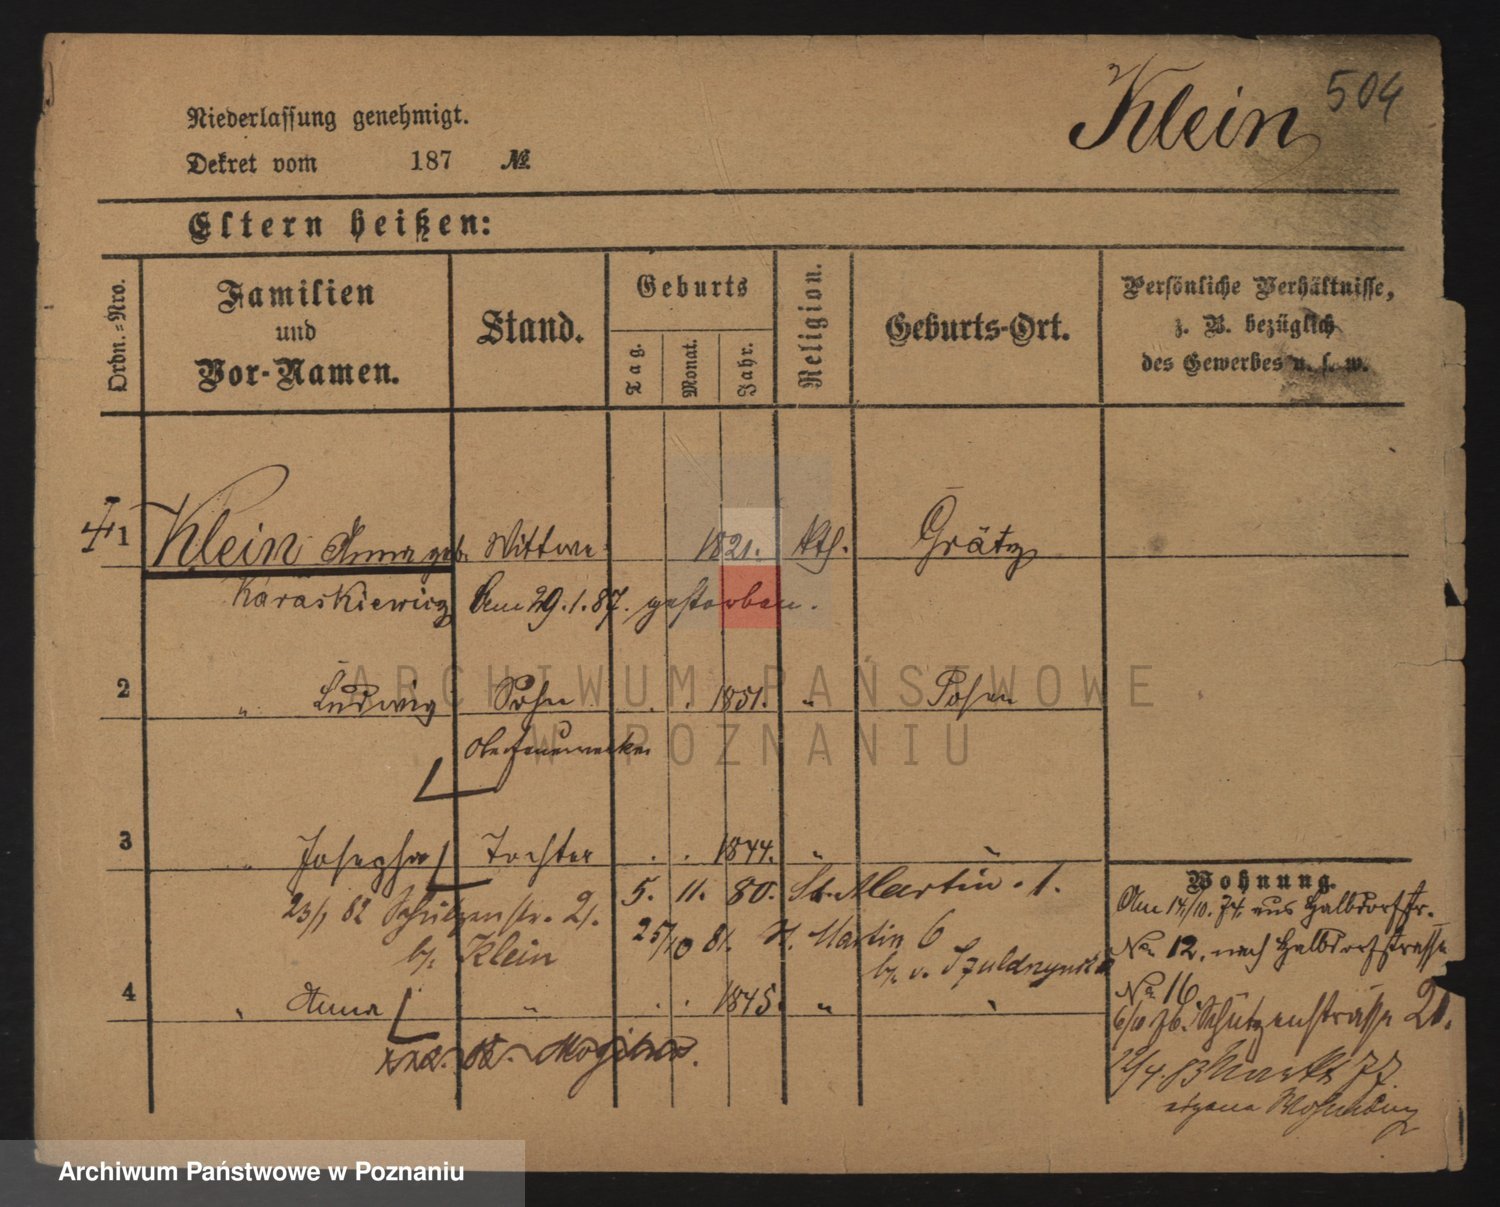 Klein 504
Niederlassung genehmigt.
Dekret vom 187 №
Eltern heißen:
Ordn.-Nro.
Familien
und
Vor-Namen.
Stand.
Geburts
Tag.
Monat.
Jahr.
Religion.
Geburts-Ort.
Persönliche Verhältnisse,
z. B. bezüglich
des Gewerbes u. s. w.
1 Klein Anna geb. Wittwe 1821. kth. Grätz
Karaskiewicz Am 29.1.87. gestorben.
2 " Ludwig Sohn . . 1851. " Posen
Oberfeuerwerker
3 " Josepha Tochter . . 1844. " "
5. 11. 80. St. Martin. 1.
23/1 82 Schützenstr. 21.
25/10 81. St. Martin 6
b/. Klein
b/. v.
4 " Anna " . . 1845. " "
Wohnung.
Am 14/10. 74. aus Halbdorfstr.
No 12. nach Halbdorfstrasse
No 16
6/10 76. Schützenstrasse 21.
Markt 77
eigene Wohnung
ARCHIWUM PAŃSTWOWE
W POZNANIU
Archiwum Państwowe w Poznaniu